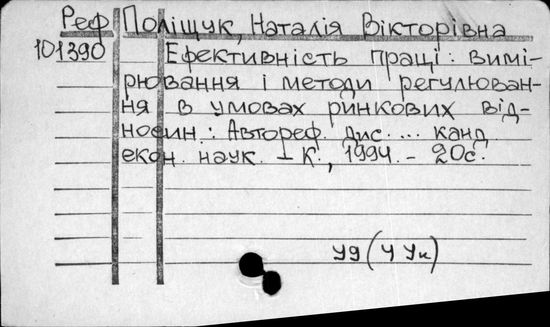 Реф Поліщук, Наталія Вікторівна
101390 Ефективність праці: вимі-
рювання і методи регулюван-
ня в умовах ринкових від-
носин.: Автореф. дис. ... канд.
екон. наук. - К., 1994. - 20с.
У9(4Ук)